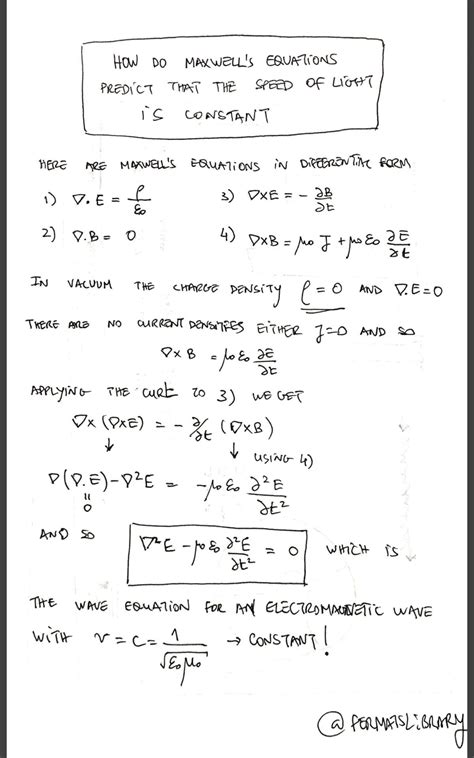 HOW DO MAXWELL'S EQUATIONS
PREDICT THAT THE SPEED OF LIGHT
IS CONSTANT
HERE ARE MAXWELL'S EQUATIONS IN DIFFERENTIAL FORM
1) ∇.E = ρ/ε₀ 3) ∇×E = - ∂B/∂t
2) ∇.B = 0 4) ∇×B = μ₀ J + μ₀ ε₀ ∂E/∂t
IN VACUUM THE CHARGE DENSITY ρ = 0 AND ∇.E = 0
THERE ARE NO CURRENT DENSITIES EITHER J=0 AND SO
∇×B = μ₀ ε₀ ∂E/∂t
APPLYING THE CURL TO 3) WE GET
∇×(∇×E) = - ∂/∂t (∇×B)
↓ ↓ USING 4)
∇(∇.E) - ∇²E = -μ₀ ε₀ ∂²E/∂t²
=
0
AND SO ∇²E - μ₀ ε₀ ∂²E/∂t² = 0 WHICH IS
THE WAVE EQUATION FOR AN ELECTROMAGNETIC WAVE
WITH v = c = 1/√ε₀μ₀ → CONSTANT!
@FERMATSLIBRARY